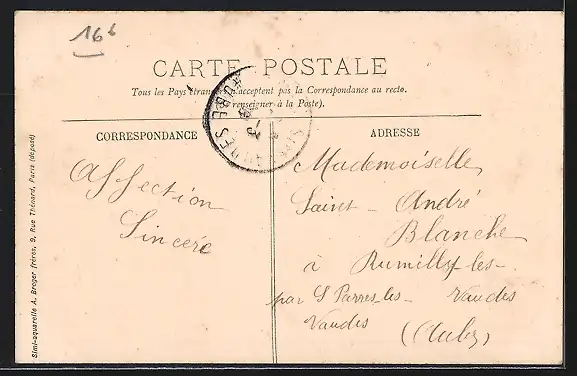 16 b
CARTE POSTALE
Tous les Pays étran acceptent pas la Correspondance au recto.
renseigner à la Poste).
CORRESPONDANCE
ADRESSE
Affection
Sincère
Mademoiselle
Saint-André
Blanche
à Rumilly-les-
par S Parres-les-Vaudes
Vaudes
(Aube)
Simi-aquarelle A. Breger frères, 9, Rue Thénard, Paris (déposé)
AUBE